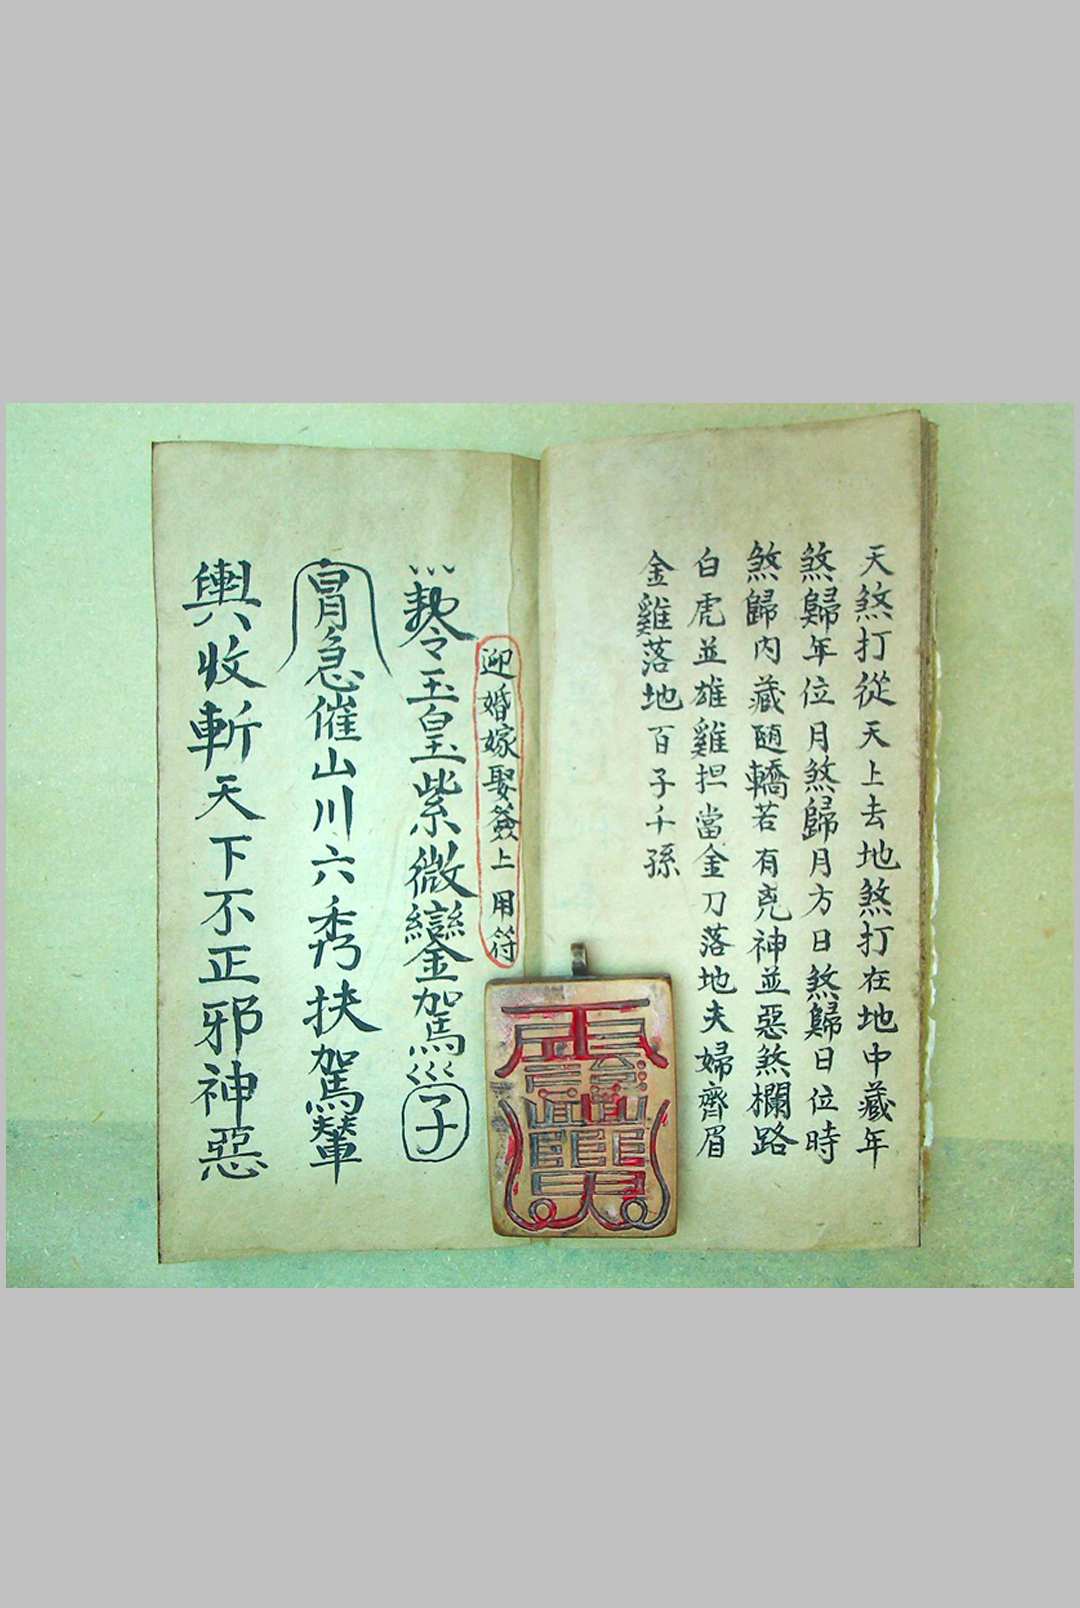 天煞打從天上去地煞打在地中藏年
煞歸年位月煞歸月方日煞歸日位時
煞歸內藏随轎若有兇神並惡煞欄路
白虎並雄雞担當金刀落地夫婦齊眉
金雞落地百子千孫
迎婚嫁娶簽上用符
令玉皇紫微鑾駕子
急催山川六秀扶駕輦
輿收斬天下不正邪神惡